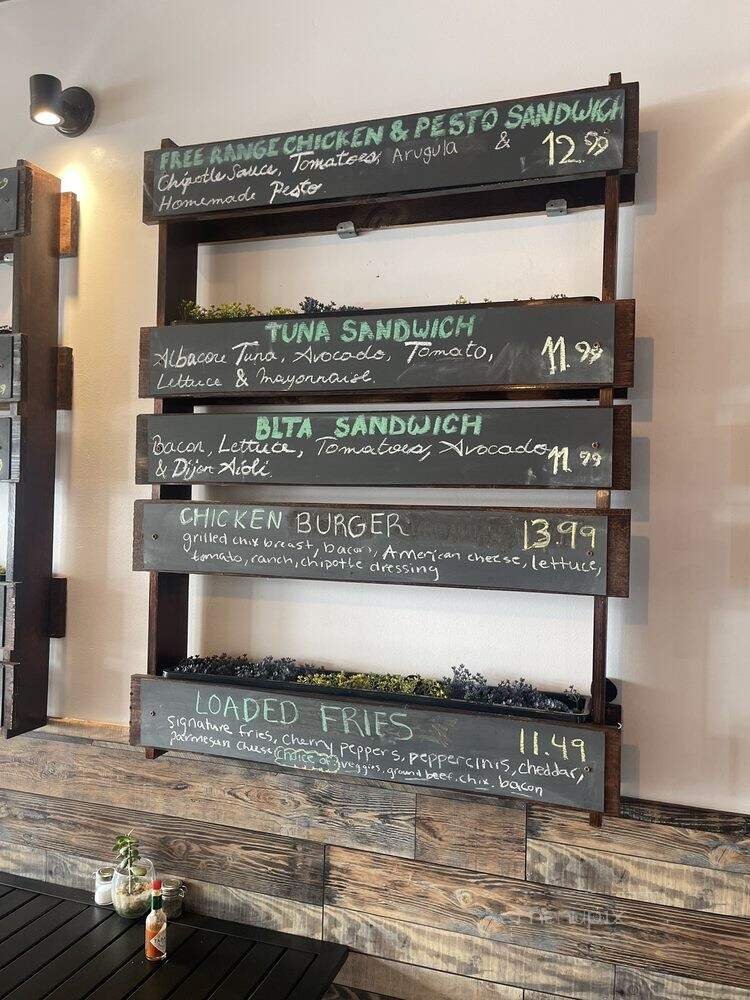 FREE RANGE CHICKEN & PESTO SANDWICH
Chipotle Sauce, Tomatoes, Arugula & 12.99
Homemade Pesto
TUNA SANDWICH
Albacore Tuna, Avocado, Tomato, 11.99
Lettuce & Mayonnaise.
BLTA SANDWICH
Bacon, Lettuce, Tomatoes, Avocado 11.99
& Dijon Aioli
CHICKEN BURGER 13.99
grilled chix breast, bacon, American cheese, lettuce,
tomato, ranch, chipotle dressing
LOADED FRIES 11.49
signature fries, cherry peppers, peppercinis, cheddar,
parmesan cheese choice of: veggies, ground beef, chix, bacon